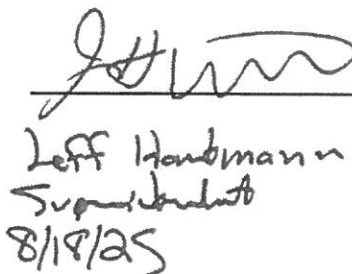 Jeff Hantmann
Superintendent
8/18/25